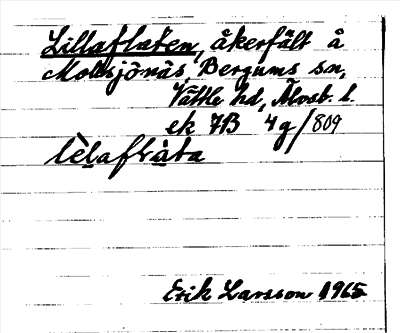 Lillaflaten, åkerfält å
Mollsjönäs, Bergums sn,
Vättle hd, Älvsb. l.
ek 7B 4g/809
Erik Larsson 1965